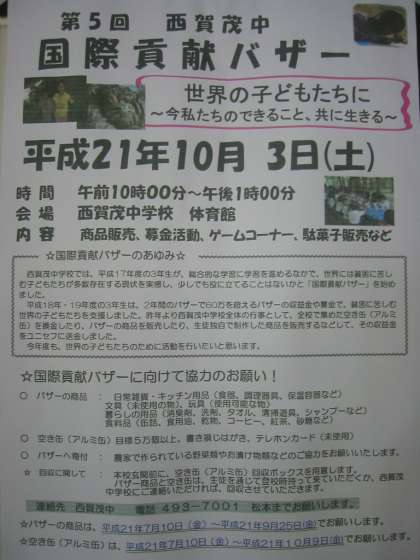 第5回　西賀茂中
国際貢献バザー
世界の子どもたちに
～今私たちのできること、共に生きる～
平成21年10月 3日(土)
時間　午前10時00分～午後1時00分
会場　西賀茂中学校　体育館
内容　商品販売、募金活動、ゲームコーナー、駄菓子販売など
☆国際貢献バザーのあゆみ☆
西賀茂中学校では、平成17年度の3年生が、総合的な学習に学習を進めるなかで、世界には貧困に苦し
む子どもたちが多数存在する現状を実感し、少しでも役に立てることはないかと「国際貢献バザー」を始
めました。
平成18年・19年度の3年生は、2年間のバザーで60万を超えるバザーの収益金や募金で、貧困に苦しむ
世界の子どもたちを支援しました。昨年より西賀茂中学校全体の行事として、全校で集めた空き缶（アルミ
缶）を換金したり、バザーの商品を販売したり、生徒独自で制作した商品を販売するなどして、その収益金
をユニセフに送金しました。
今年度も、世界の子どもたちのために活動を行いたいと思います。
☆国際貢献バザーに向けて協力のお願い！
○ バザーの商品 ： 日常雑貨・キッチン用品（食器、調理器具、保温容器など）
文具（未使用の物）、玩具（使用可能な物）
暮らしの用品（消臭剤、洗剤、タオル、清掃道具、シャンプーなど）
食料品（缶詰、食用油、乾物、コーヒー、紅茶、砂糖など）
○ 空き缶（アルミ缶）目標5万個以上、書き損じはがき、テレホンカード（未使用）
○ バザーへ寄付 ： 農家で作られている野菜類やお漬け物類などのご協力をお願いいたします。
☆ 回収に関して ： 本校玄関前に、空き缶（アルミ缶）回収ボックスを用意します。
バザー商品と空き缶は、生徒を通じて登校時持って来ていただくか、西賀茂
中学校にご連絡いただければ、回収させていただきます。
連絡先　西賀茂中　電話 493-7001　松本までお願いします。
☆バザーの商品は、平成21年7月10日（金）～平成21年9月25日(金)でお願いします。
☆空き缶（アルミ缶）は、平成21年7月10日（金）～平成21年10月9日(金)でお願いします。